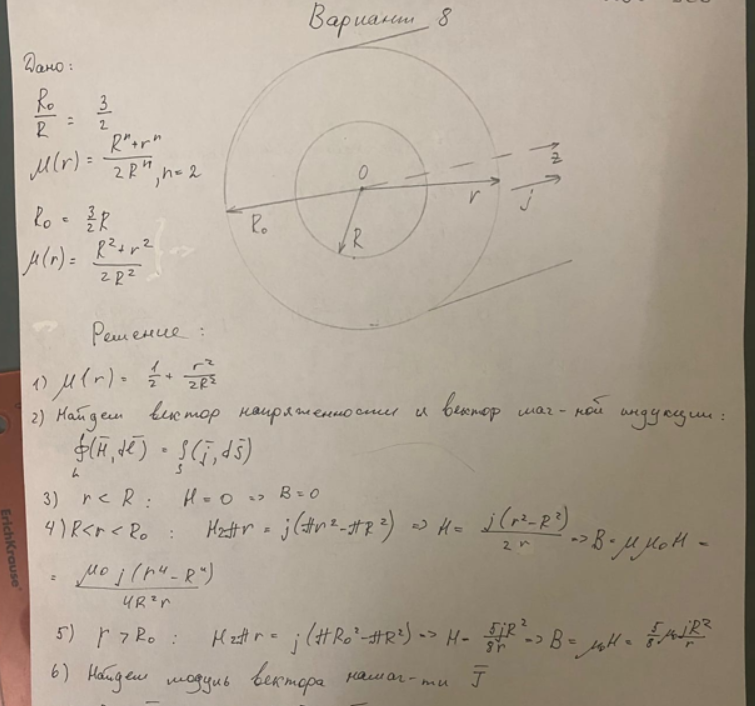 Вариант 8
Дано:
R₀/R = 3/2
μ(r) = (Rⁿ+rⁿ)/(2Rⁿ), n=2
R₀ = 3/2 R
μ(r) = (R²+r²)/(2R²)
O
z
r
j
R₀
R
Решение:
1) μ(r) = 1/2 + r²/(2R²)
2) Найдем вектор напряженности и вектор маг-ной индукции:
∮(H̄, dl̄) = ∫(j̄, ds̄)
L S
3) r < R : H = 0 => B = 0
4) R<r<R₀ : H2πr = j(πr²-πR²) => H = j(r²-R²)/(2r) => B = μμ₀H =
= μ₀j(r⁴-R⁴)/(4R²r)
5) r > R₀ : H2πr = j(πR₀²-πR²) => H = 5jR²/(8r) => B = μ₀H = 5/8 μ₀jR²/r
6) Найдем модуль вектора намаг-ти J̄
ErichKrause